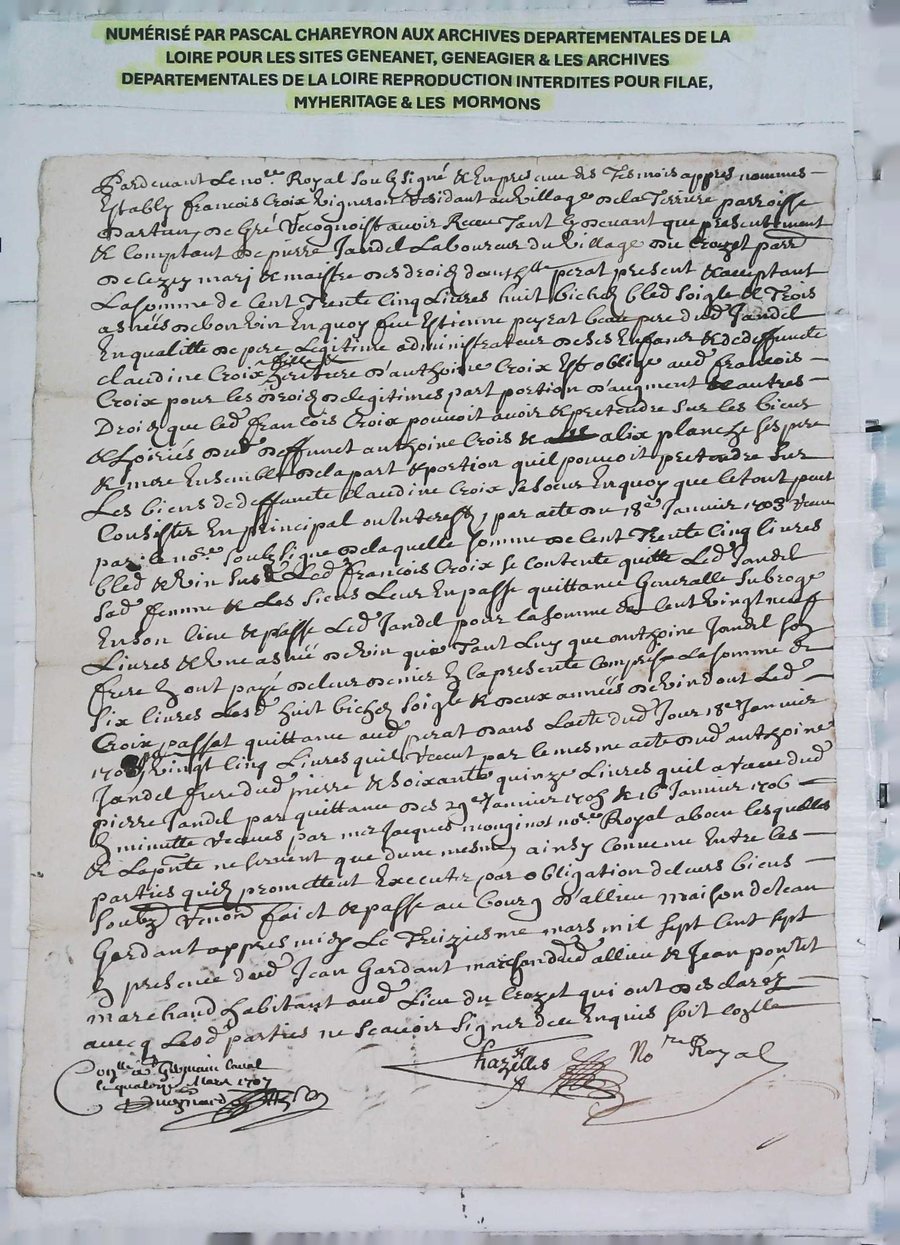 NUMÉRISÉ PAR PASCAL CHAREYRON AUX ARCHIVES DEPARTEMENTALES DE LA
LOIRE POUR LES SITES GENEANET, GENEAGIER & LES ARCHIVES
DEPARTEMENTALES DE LA LOIRE REPRODUCTION INTERDITES POUR FILAE,
MYHERITAGE & LES MORMONS
Pardevant Le no.re Royal soubsigné & En presence des Tesmois appres nommés
Estably francois Croix vigneron Residant au village de la Terriere parroisse
de gré Recognoist avoir Receu Tant cy devant que presentement
& comptant de pierre Jandel Laboureur du village du Crozet parr
de mary & maistre des droicts perat present & acceptant
La somme de Cent Trente Cinq Livres huit bichés bled soigle & Trois
asnéés de bon vin En quoy feu Estienne peyrat beau pere dud Jandel
En qualitte de pere Legitime administrateur de ses Enfans & de deffuncte
claudine Croix fille & heritiere d'anthoine Croix Est oblige aud francois
Croix pour les droicts de legitimes part portion d'augment & autres
Droicts que led francois Croix pouvoit avoir & pretendre sur les biens
& hoiriés dud deffunct anthoine Crois & alix planche ses pere
& mere Ensemble de la part & portion quil pouvoit pretendre sur
Les biens de deffuncte claudine Croix sa soeur En quoy que le tout peut
Consister En principal ou Interestz, par acte du 18e Janvier 1703 Receu
par le no.re soubsigne de laquelle somme de Cent Trente Cinq livres
bled & vin susd Led francois Croix se contente quitte Led Jandel
sad femme & Les siens Leur En passe quittance Generalle subroge
En son lieu & place Led Jandel pour la somme de Cent vingt neuf
Livres & Une asnéé de vin que Tant Luy que anthoine Jandel son
frere ont payé de leurs deniers La presente Comprise La somme de
six livres Lesd huit bichés soigle & deux annéés de vin dont Led
Croix passat quittance aud perat dans Lacte dud Jour 18e Janvier
vingt cinq Livres quil Receut par le mesme acte dud anthoine
Jandel frere dud pierre & soixante quinze Livres quil a Receu dud
pierre Jandel par quittance des 29e Janvier & 16 Janvier 1706
minutte Receues par me Jacques mongino no.re Royal a boen lesquelles
& La pnte ne servent que d'une mesme, ainsy Convenu Entre les
parties promettent Executer par obligation de leurs biens
soubz Renon faict & passe au bourg d'allieu maison de Jean
Gardant appres midy Le Treiziesme mars mil sept Cent sept
presence dud Jean Gardant marchand dud allieu & Jean pontet
marchand habitant aud Lieu du Crozet qui ont declaré
avecq Lesd parties ne scavoir signer de ce Enquis soit
Chazelles No.re Royal
St Germain Laval
le quatorze Mars 1707